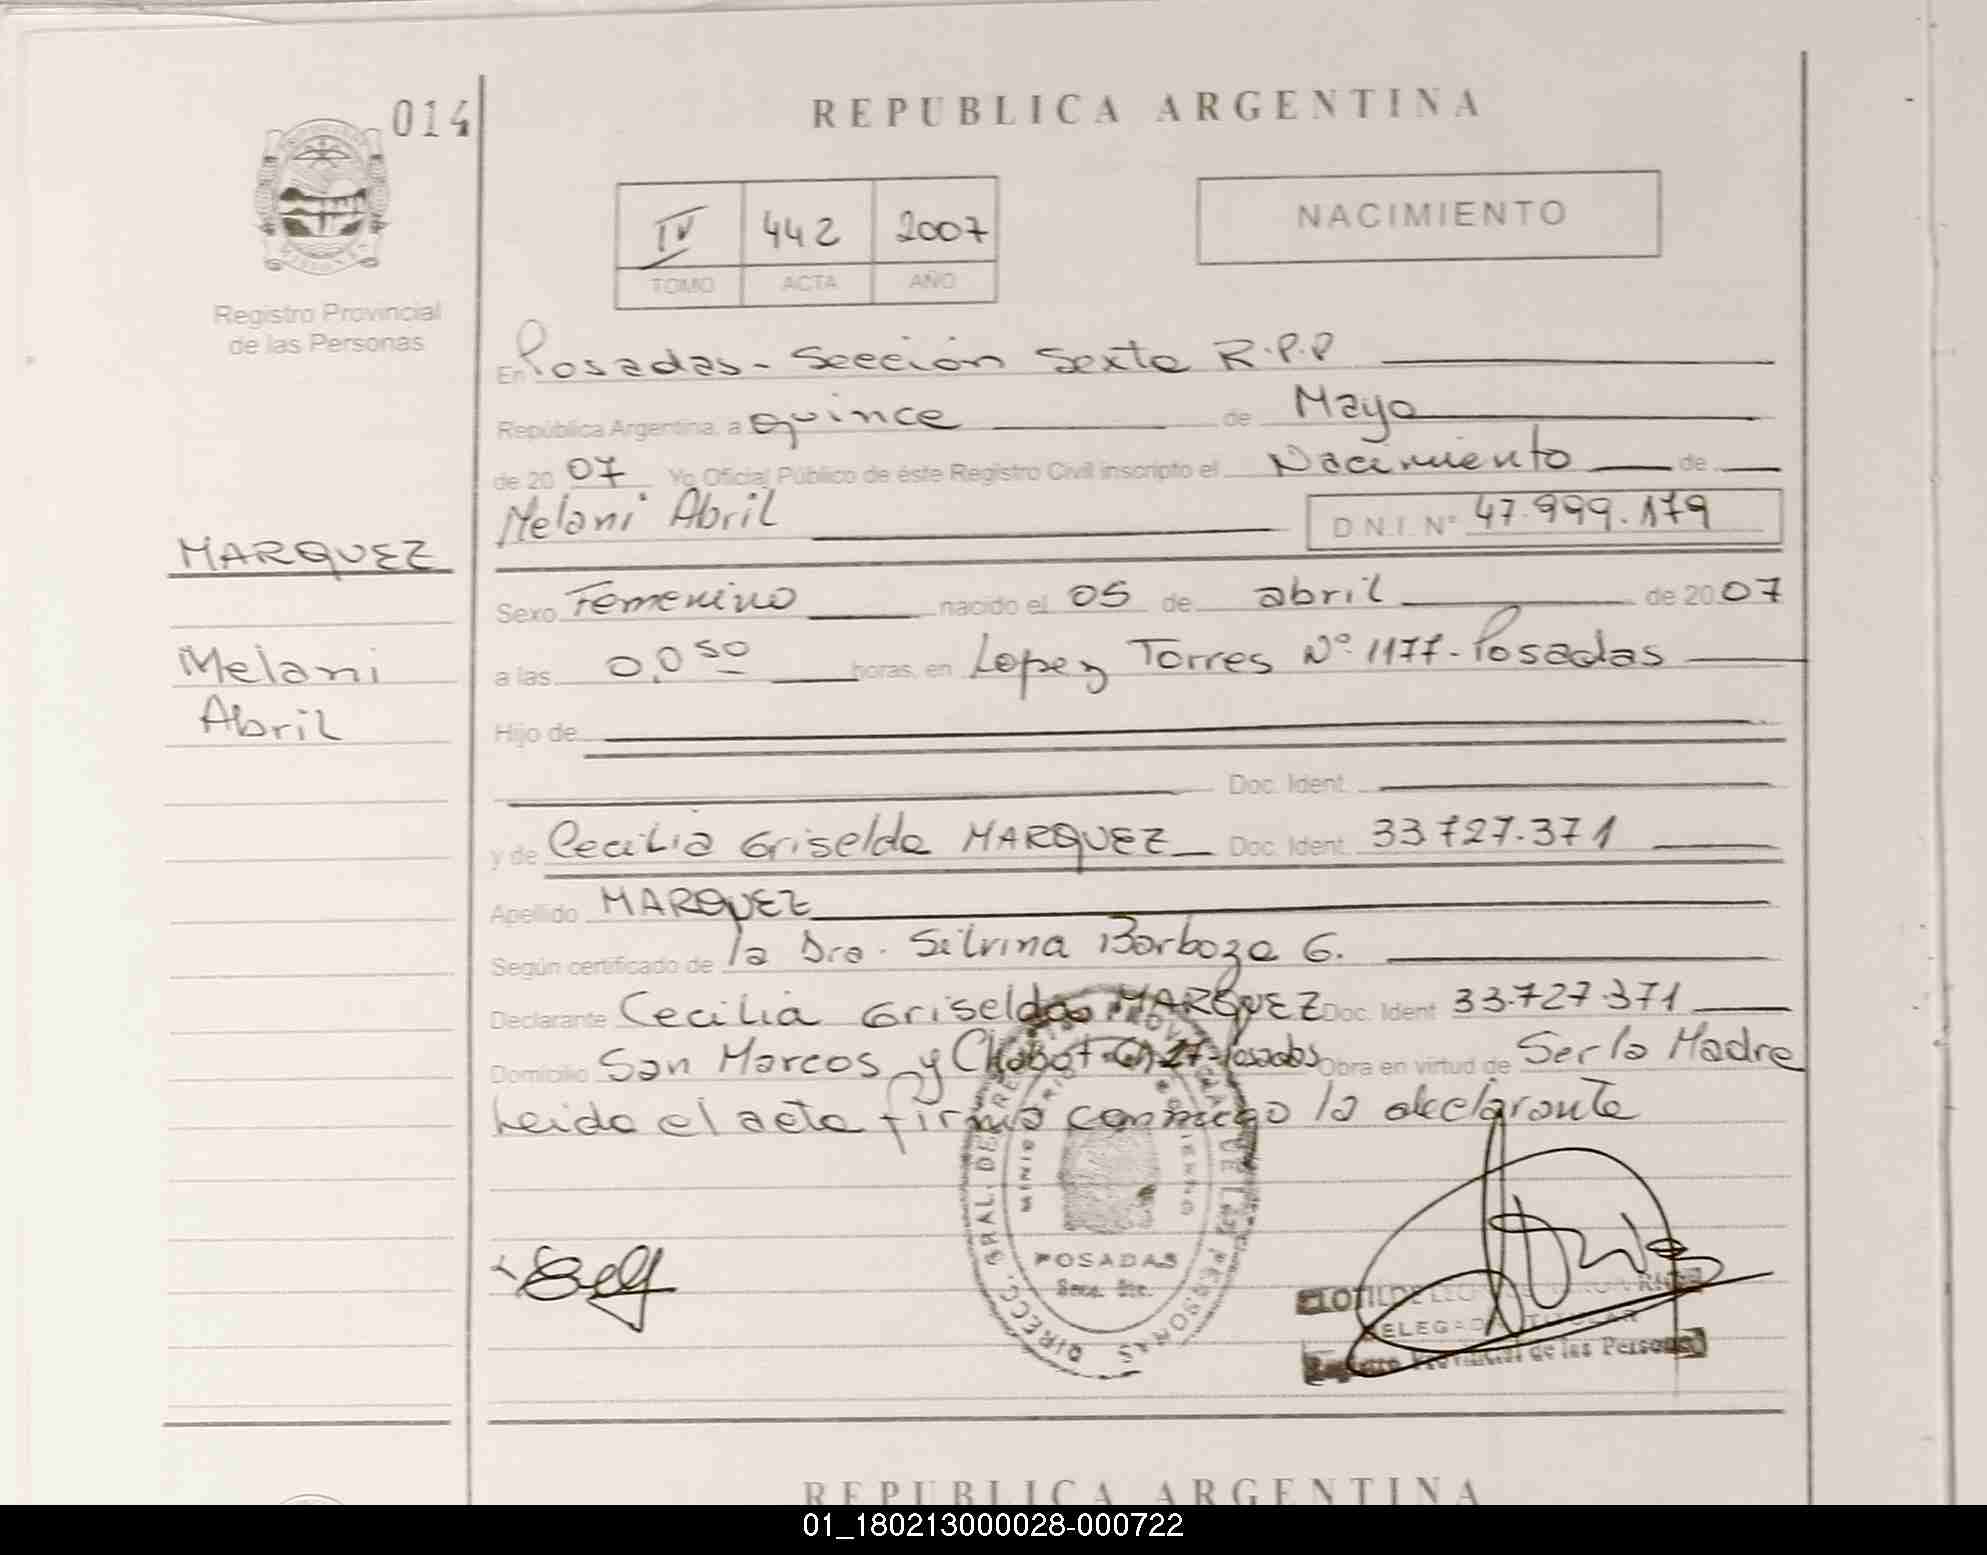 014
REPUBLICA ARGENTINA
IV 442 2007
TOMO ACTA AÑO
NACIMIENTO
Registro Provincial
de las Personas
En Posadas - Sección Sexta R.P.P
República Argentina, a quince de Mayo
de 20 07 Yo Oficial Público de éste Registro Civil inscripto el Nacimiento de
Melani Abril D.N.I. Nº 47.999.179
MARQUEZ
Melani
Abril
Sexo Femenino nacido el 05 de abril de 20 07
a las 0,0 50 horas, en Lopez Torres Nº 1177 - Posadas
Hijo de
Doc. Ident.
y de Cecilia Griselda MARQUEZ Doc. Ident. 33.727.371
Apellido MARQUEZ
Según certificado de la Dra. Silvina Barboza G.
Declarante Cecilia Griselda MARQUEZ Doc. Ident 33.727.371
Domicilio San Marcos y Chabot Posadas Obra en virtud de Ser la Madre
Leida el acta firma conmigo la declarante
DIRECC. GRAL. DE REG. PROV. DE LAS PERSONAS
POSADAS
DELEGADA TITULAR
Registro Provincial de las Personas
REPUBLICA ARGENTINA
01_180213000028-000722